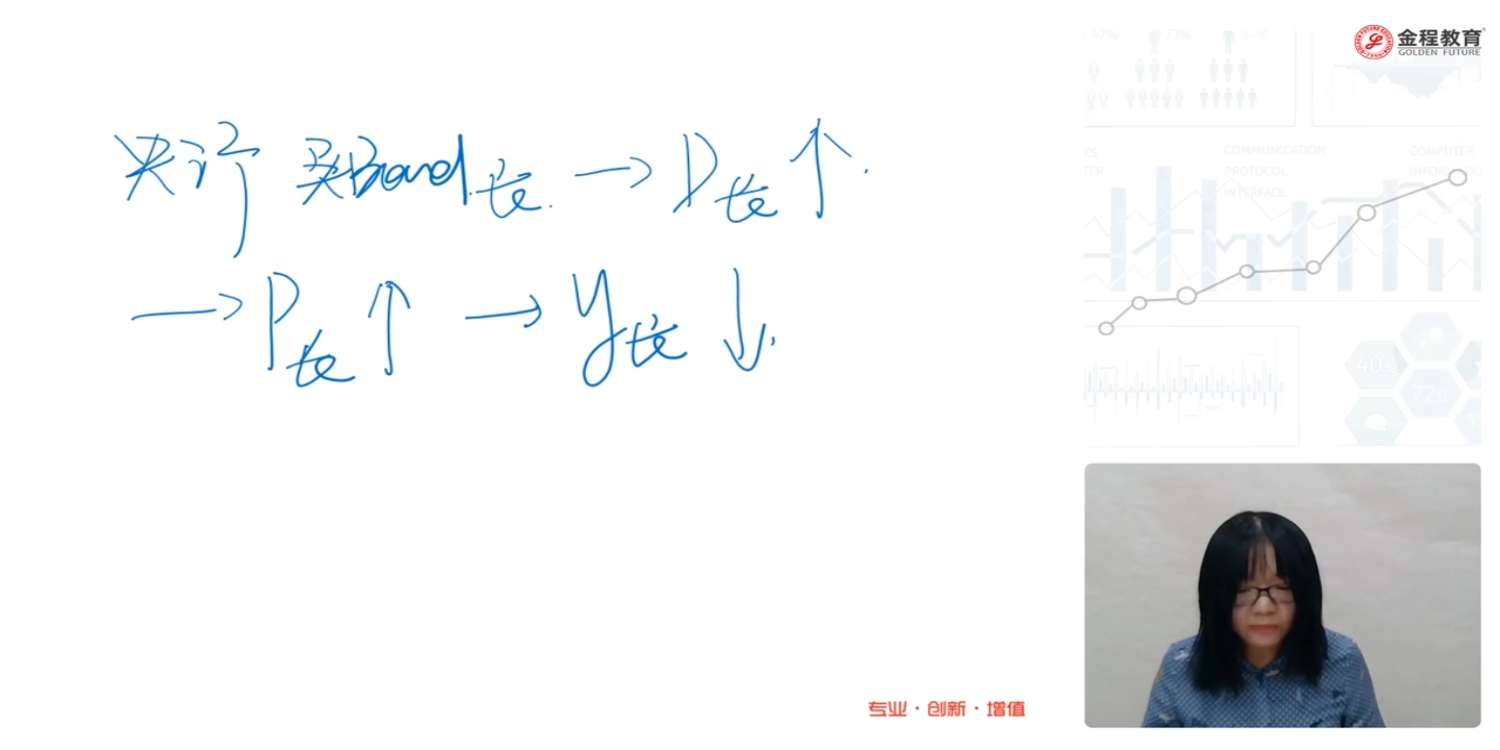 央行 买Bond长 → D长↑
→ P长↑ → y长↓
金程教育
GOLDEN FUTURE
COMMUNICATION
PROTOCOL
INTERFACE
COMPUTER
专业·创新·增值